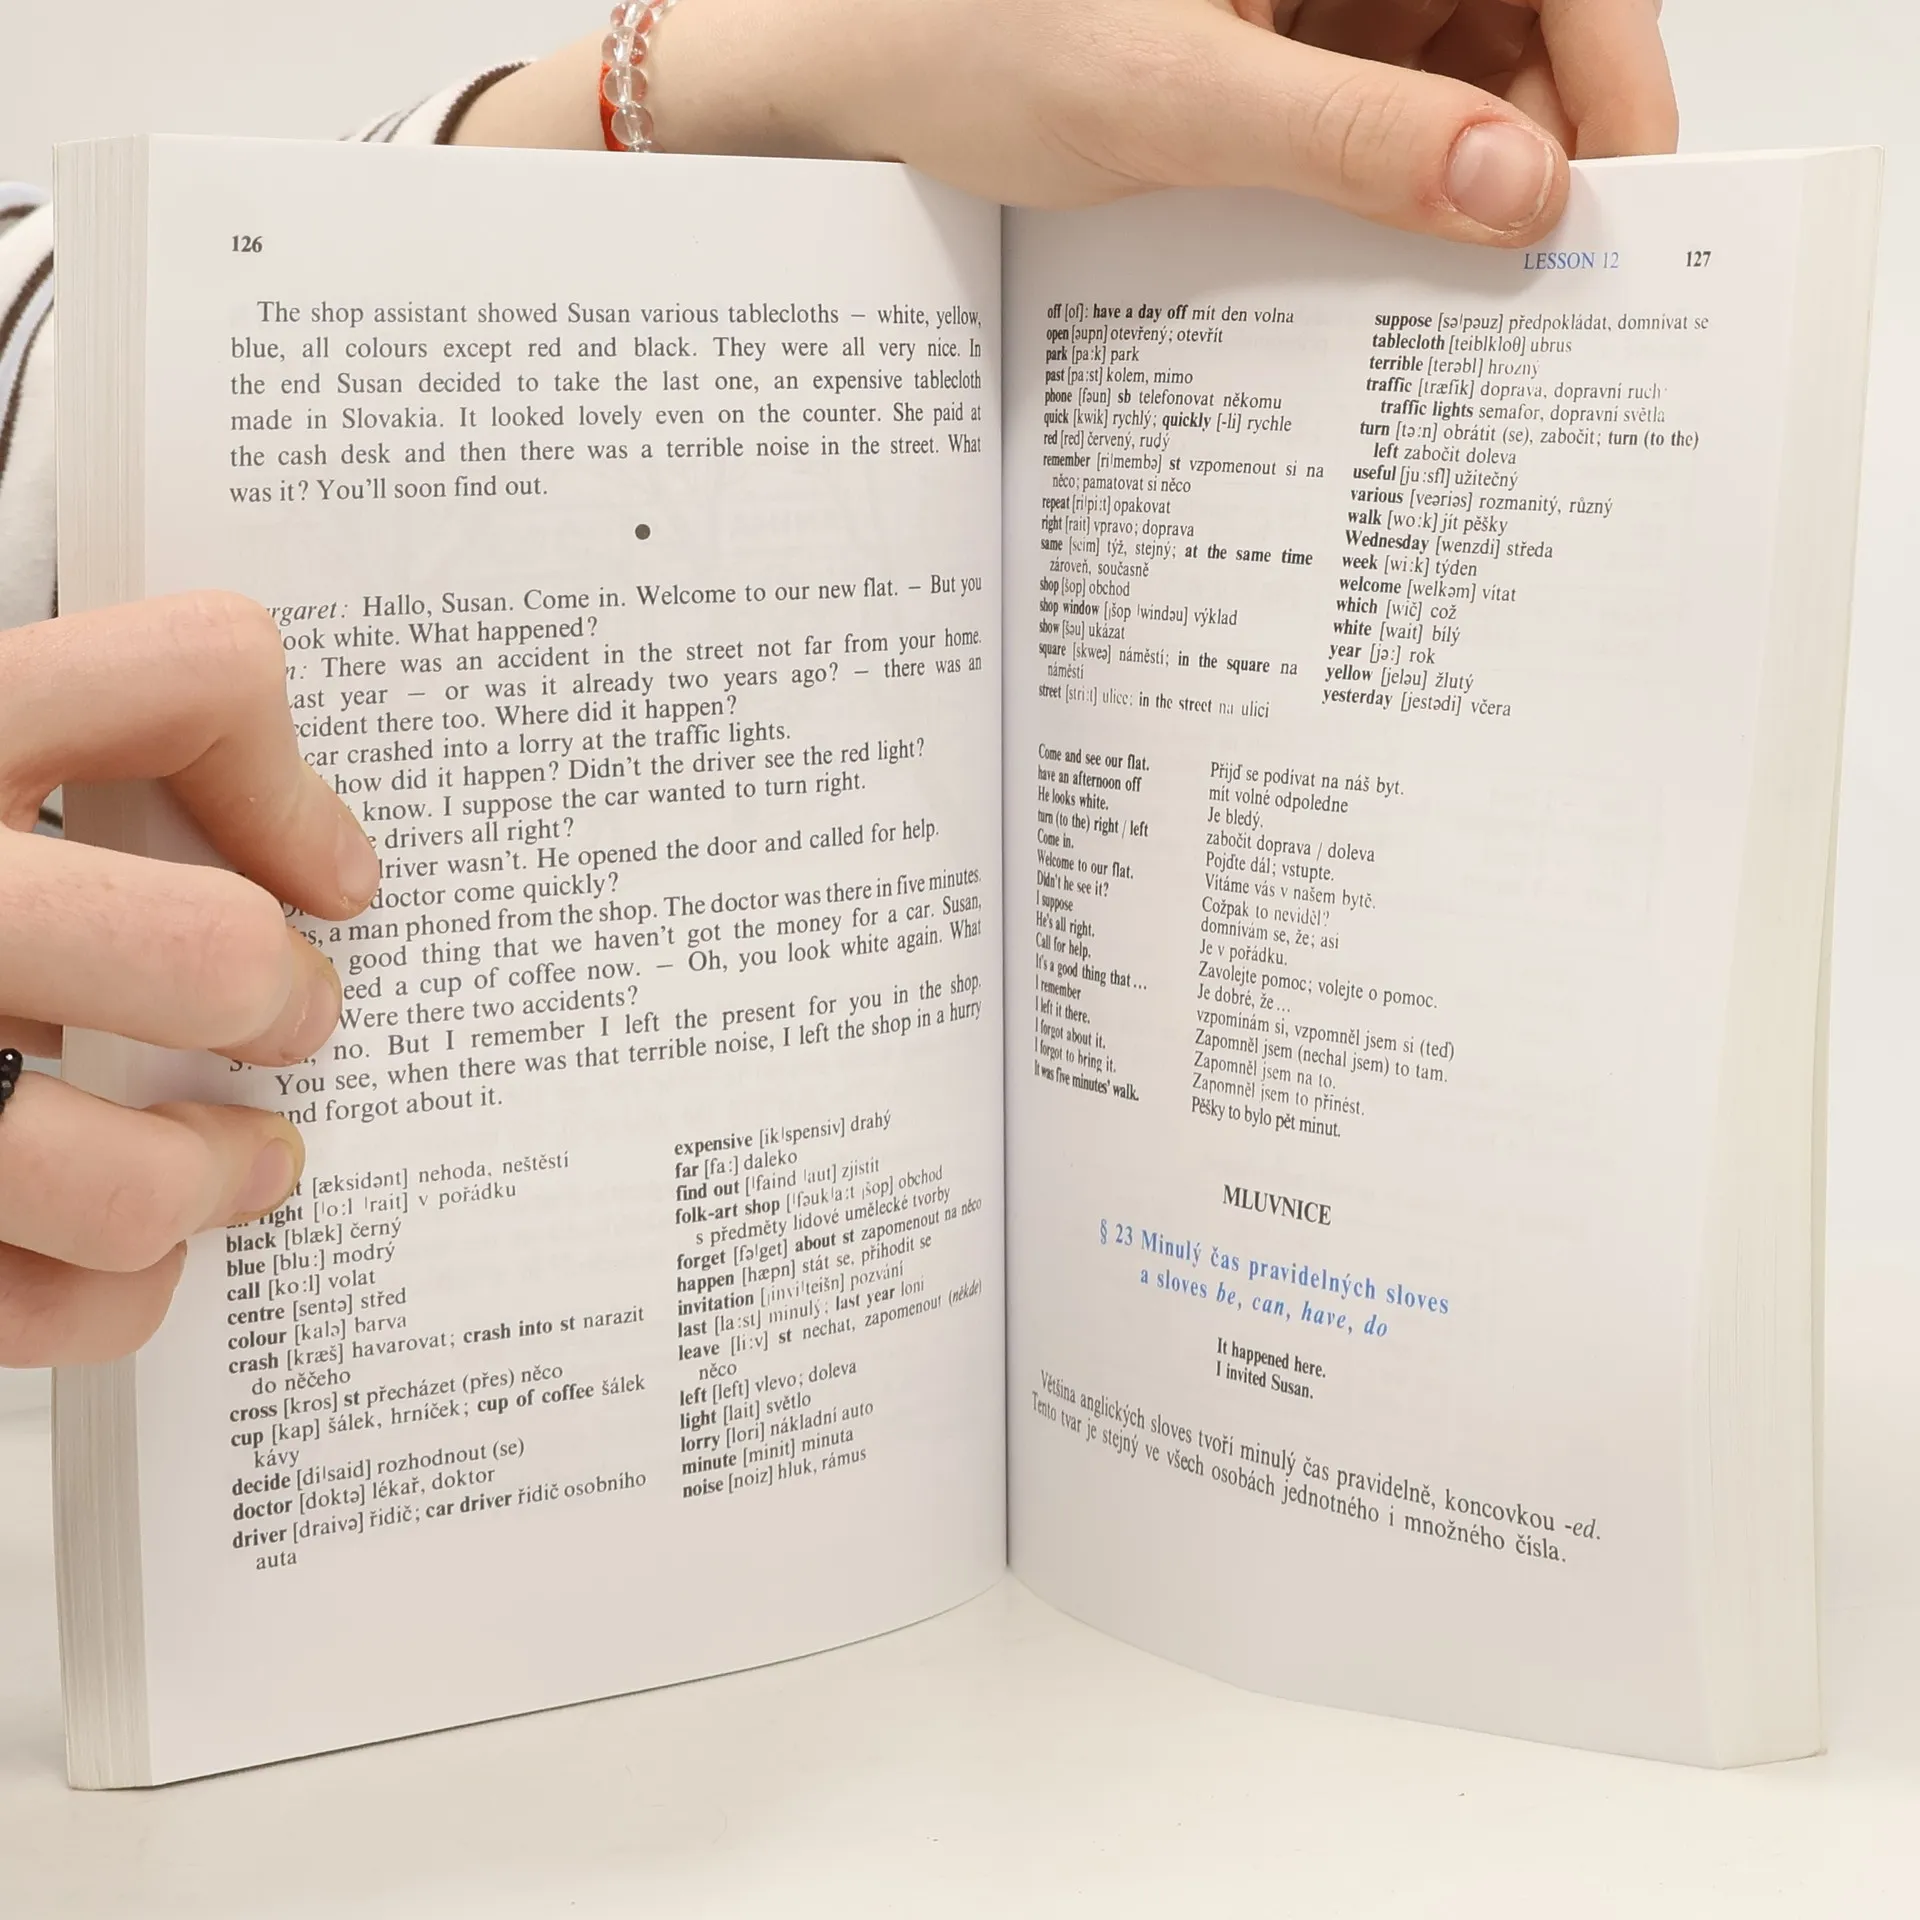 126
The shop assistant showed Susan various tablecloths – white, yellow,
blue, all colours except red and black. They were all very nice. In
the end Susan decided to take the last one, an expensive tablecloth
made in Slovakia. It looked lovely even on the counter. She paid at
the cash desk and then there was a terrible noise in the street. What
was it? You'll soon find out.
Hallo, Susan. Come in. Welcome to our new flat. – But you
white. What happened?
There was an accident in the street not far from your home.
year – or was it already two years ago? – there was an
there too. Where did it happen?
car crashed into a lorry at the traffic lights.
how did it happen? Didn't the driver see the red light?
know. I suppose the car wanted to turn right.
drivers all right?
wasn't. He opened the door and called for help.
doctor come quickly?
a man phoned from the shop. The doctor was there in five minutes.
good thing that we haven't got the money for a car. Susan,
a cup of coffee now. – Oh, you look white again. What
Were there two accidents?
no. But I remember I left the present for you in the shop.
You see, when there was that terrible noise, I left the shop in a hurry
and forgot about it.
[æksidənt] nehoda, neštěstí
right [ˈo:l ˈrait] v pořádku
black [blæk] černý
blue [blu:] modrý
call [ko:l] volat
centre [sentə] střed
colour [kalə] barva
crash [kræš] havarovat; crash into st narazit
do něčeho
cross [kros] st přecházet (přes) něco
cup [kap] šálek, hrníček; cup of coffee šálek
kávy
decide [diˈsaid] rozhodnout (se)
doctor [doktə] lékař, doktor
driver [draivə] řidič; car driver řidič osobního
auta
expensive [ikˈspensiv] drahý
far [fa:] daleko
find out [ˈfaind ˈaut] zjistit
folk-art shop [ˈfəukˈa:t ˌšop] obchod
s předměty lidové umělecké tvorby
forget [fəˈget] about st zapomenout na něco
happen [hæpn] stát se, přihodit se
invitation [ˌinviˈteišn] pozvání
last [la:st] minulý; last year loni
leave [li:v] st nechat, zapomenout (někde)
něco
left [left] vlevo; doleva
light [lait] světlo
lorry [lori] nákladní auto
minute [minit] minuta
noise [noiz] hluk, rámus
LESSON 12 127
off [of]: have a day off mít den volna
open [əupn] otevřený; otevřít
park [pa:k] park
past [pa:st] kolem, mimo
phone [fəun] sb telefonovat někomu
quick [kwik] rychlý; quickly [-li] rychle
red [red] červený, rudý
remember [riˈmembə] st vzpomenout si na
něco; pamatovat si něco
repeat [riˈpi:t] opakovat
right [rait] vpravo; doprava
same [seim] týž, stejný; at the same time
zároveň, současně
shop [šop] obchod
shop window [ˌšop ˈwindəu] výklad
show [šəu] ukázat
square [skweə] náměstí; in the square na
náměstí
street [stri:t] ulice; in the street na ulici
suppose [səˈpəuz] předpokládat, domnívat se
tablecloth [teiblkloθ] ubrus
terrible [terəbl] hrozný
traffic [træfik] doprava, dopravní ruch
traffic lights semafor, dopravní světla
turn [tə:n] obrátit (se), zabočit; turn (to the)
left zabočit doleva
useful [ju:sfl] užitečný
various [veəriəs] rozmanitý, různý
walk [wo:k] jít pěšky
Wednesday [wenzdi] středa
week [wi:k] týden
welcome [welkəm] vítat
which [wič] což
white [wait] bílý
year [jə:] rok
yellow [jeləu] žlutý
yesterday [jestədi] včera
Come and see our flat. Přijď se podívat na náš byt.
have an afternoon off mít volné odpoledne
He looks white. Je bledý.
turn (to the) right / left zabočit doprava / doleva
Come in. Pojďte dál; vstupte.
Welcome to our flat. Vítáme vás v našem bytě.
Didn't he see it? Cožpak to neviděl?
I suppose domnívám se, že; asi
He's all right. Je v pořádku.
Call for help. Zavolejte pomoc; volejte o pomoc.
It's a good thing that ... Je dobré, že ...
I remember vzpomínám si, vzpomněl jsem si (teď)
I left it there. Zapomněl jsem (nechal jsem) to tam.
I forgot about it. Zapomněl jsem na to.
I forgot to bring it. Zapomněl jsem to přinést.
It was five minutes' walk. Pěšky to bylo pět minut.
MLUVNICE
§ 23 Minulý čas pravidelných sloves
a sloves be, can, have, do
It happened here.
I invited Susan.
Většina anglických sloves tvoří minulý čas pravidelně, koncovkou -ed.
Tento tvar je stejný ve všech osobách jednotného i množného čísla.